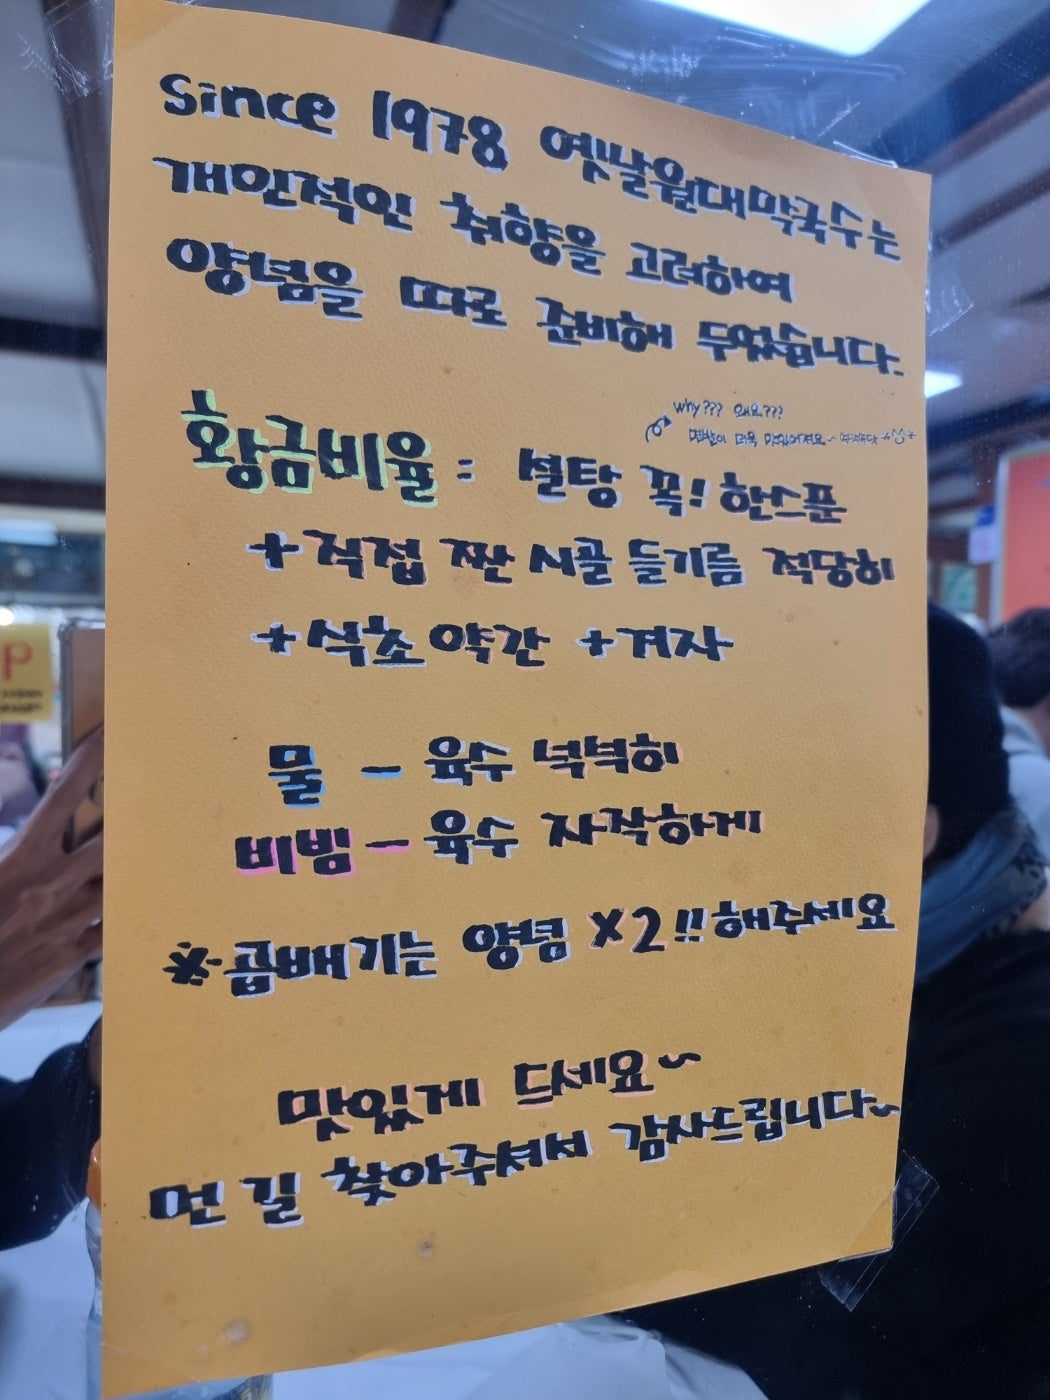 since 1978 옛날월대막국수는
개인적인 취향을 고려하여
양념을 따로 준비해 두었습니다.
why??? 왜요???
면발이 더욱 맛있어져요~
황금비율 : 설탕 꼭! 한스푼
+ 직접 짠 시골 들기름 적당히
+ 식초 약간 + 겨자
물 - 육수 넉넉히
비빔 - 육수 자작하게
※곱배기는 양념 X2!! 해주세요
맛있게 드세요~
먼 길 찾아주셔서 감사드립니다~
P